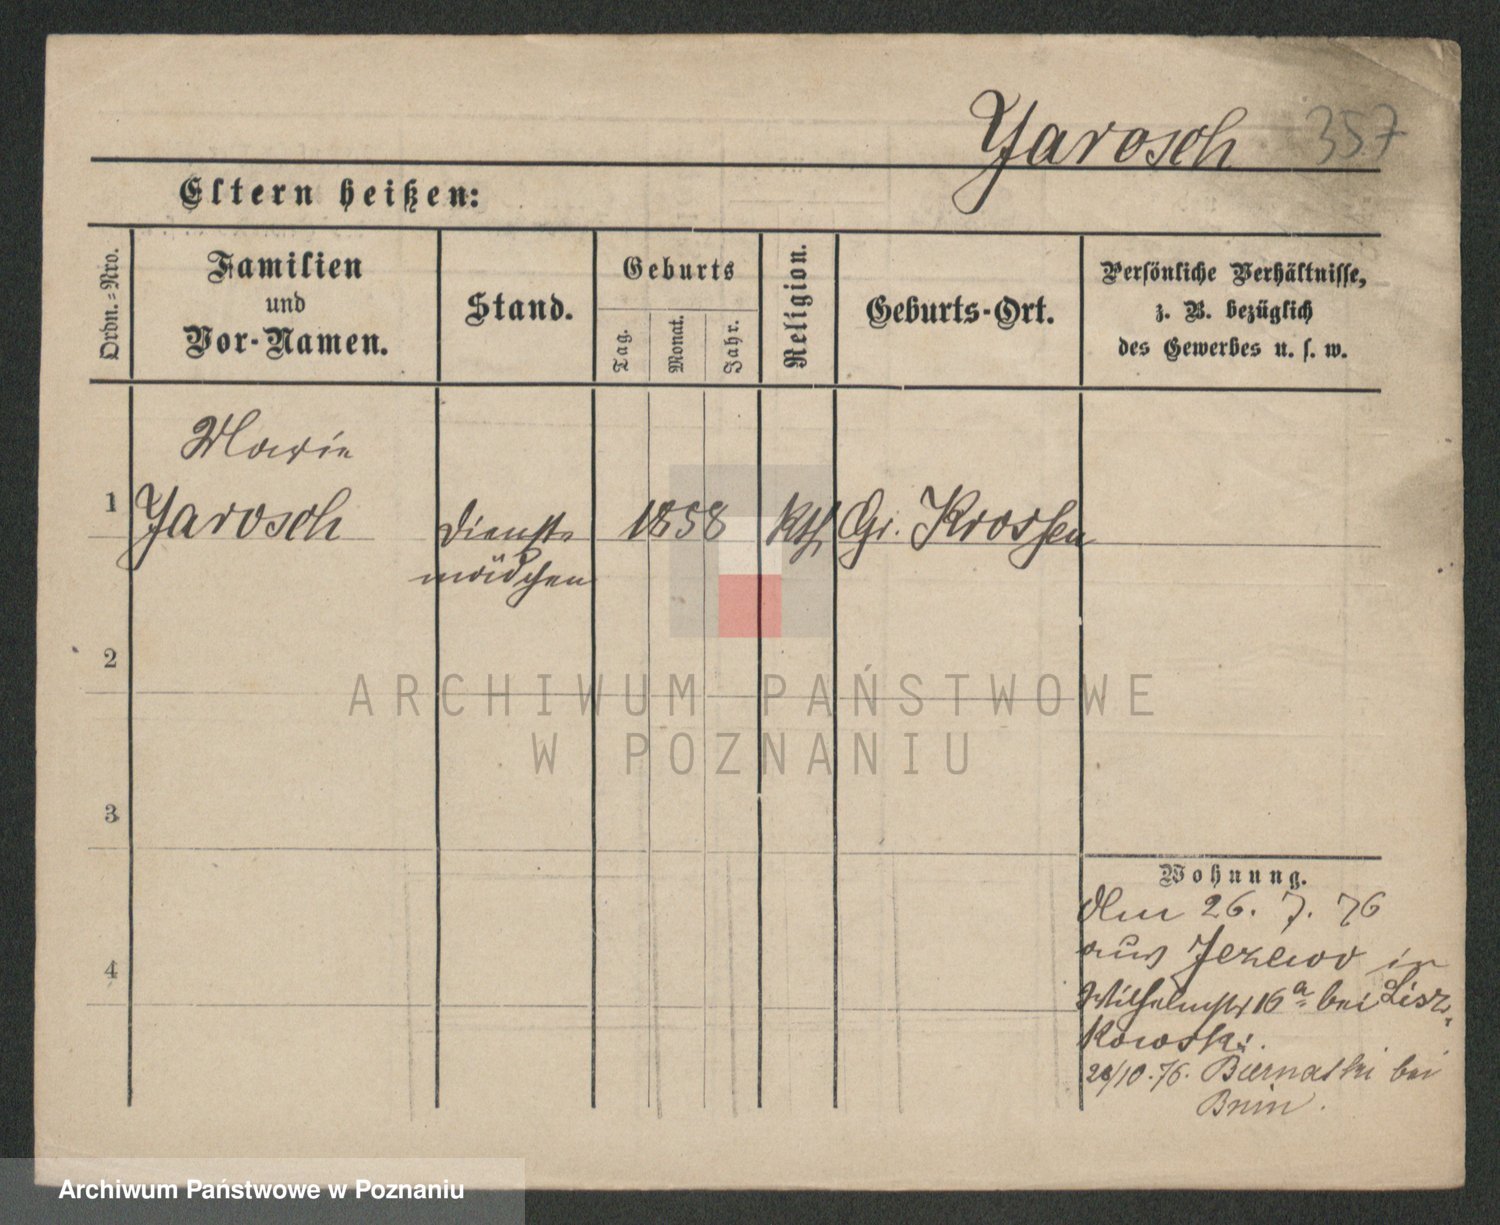 Yarosch 357
Eltern heißen:
Ordn.=Nro.
Familien
und
Vor-Namen.
Stand.
Geburts
Tag.
Monat.
Jahr.
Religion.
Geburts-Ort.
Persönliche Verhältnisse,
z. B. bezüglich
des Gewerbes u. s. w.
Marie
1 Yarosch Dienst= 1858 kth Gr. Krossen
mädchen
2
ARCHIWUM PAŃSTWOWE
W POZNANIU
3
Wohnung.
Den 26. 7. 76
aus Jezewo in
Wilhelmstr 16 a bei Lisz-
kowski.
28/10. 76. Biernatki bei
Bnin.
4
Archiwum Państwowe w Poznaniu